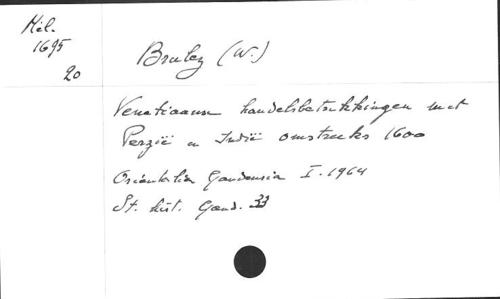 Mél.
1695
20
Brulez (W.)
Venetiaanse handelsbetrekkingen met
Perzië en Indië omstreeks 1600
Orientalia Gandensia I. 1964
St. hist. Gand. 33